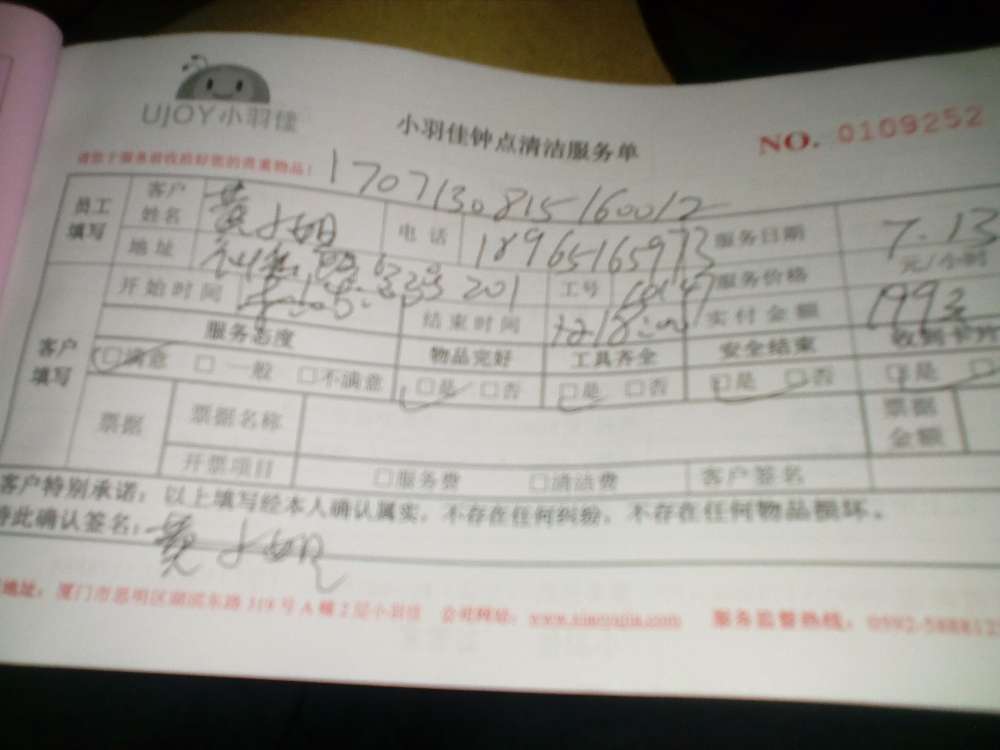 UJOY小羽佳
小羽佳钟点清洁服务单
NO. 0109252
请您于服务前收拾好您的贵重物品!
1707130815160012
员工填写 客户姓名 黄小姐 电话 18965165973 服务日期 7.13
地址 201 工号 服务价格 元/小时
客户填写 开始时间 结束时间 实付金额
服务态度 物品完好 工具齐全 安全结束
□满意 □一般 □不满意 □是 □否 □是 □否 □是 □否 □是 □
票据 票据名称 票据金额
开票项目 □服务费 □清洁费 客户签名
客户特别承诺:以上填写经本人确认属实,不存在任何纠纷,不存在任何物品损坏。
特此确认签名: 黄小姐
地址:厦门市思明区湖滨东路319号A幢2层小羽佳 公司网站:www.xiaoyujia.com 服务监督热线:0592-588812